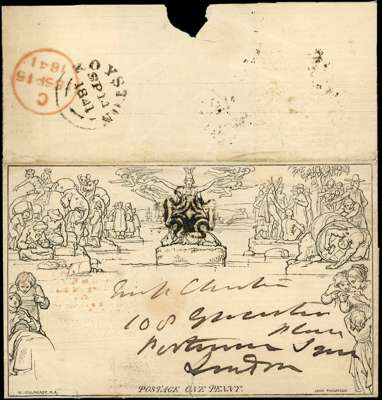 OYSTE
SP 14
1841
C
SP 15
1841
108 Gloucester
Place
Portman Square
London
W. MULREADY. R.A.
POSTAGE ONE PENNY.
JOHN THOMPSON